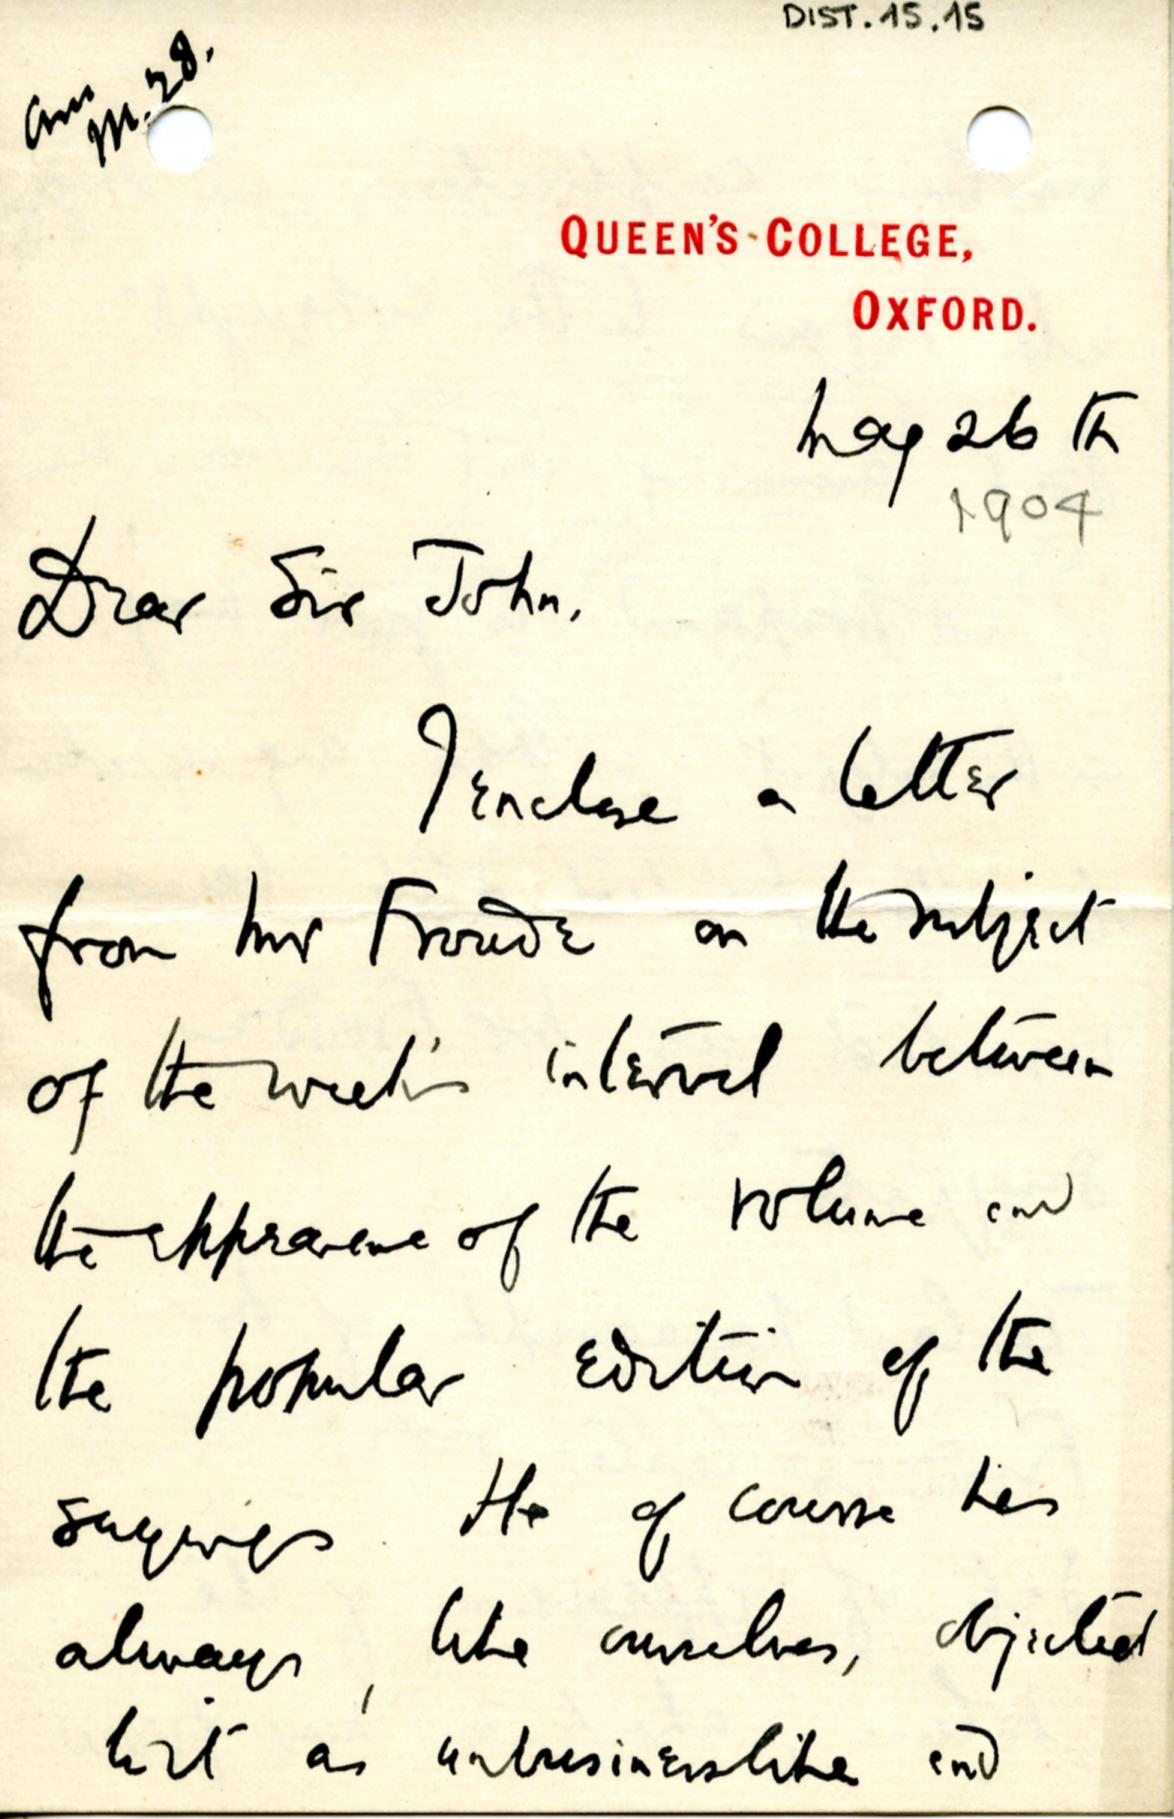 DIST.15.15
Ans
M.28.
QUEEN'S COLLEGE,
OXFORD.
May 26th
1904
Dear Sir John,
I enclose a letter
from Mr Froude on the subject
of the week's interval between
the appearance of the volume and
the popular edition of the
sayings. He of course has
always, like ourselves, objected
to it as unbusinesslike and